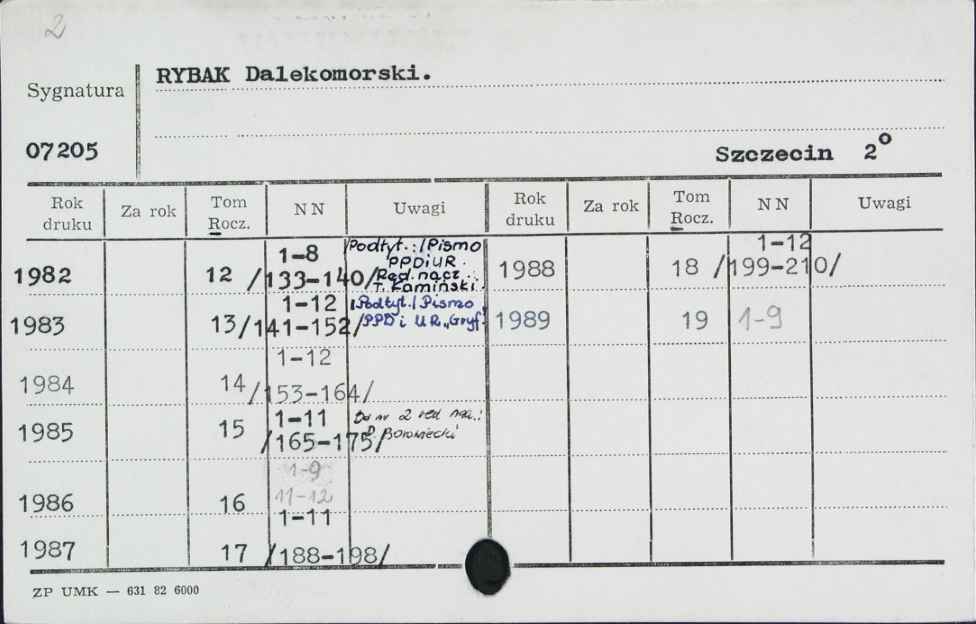 2
RYBAK Dalekomorski.
Sygnatura
07205
Szczecin 2°
Rok druku Za rok Tom Rocz. NN Uwagi Rok druku Za rok Tom Rocz. NN Uwagi
1982 12 1-8 /133-140/ Podtyt.:/Pismo PPDiUR. Red. nacz.: T. Kamiński.
1988 18 1-12 /199-210/
1983 13 1-12 /141-152/ /Podtyt./Pismo /PPD i UR „Gryf"
1989 19 1-9
1984 14 1-12 /153-164/
1985 15 1-11 /165-175/ Do nr 2 red. Borowiecki
1986 16 1-9 11-12
1987 17 1-11 /188-198/
ZP UMK — 631 82 6000